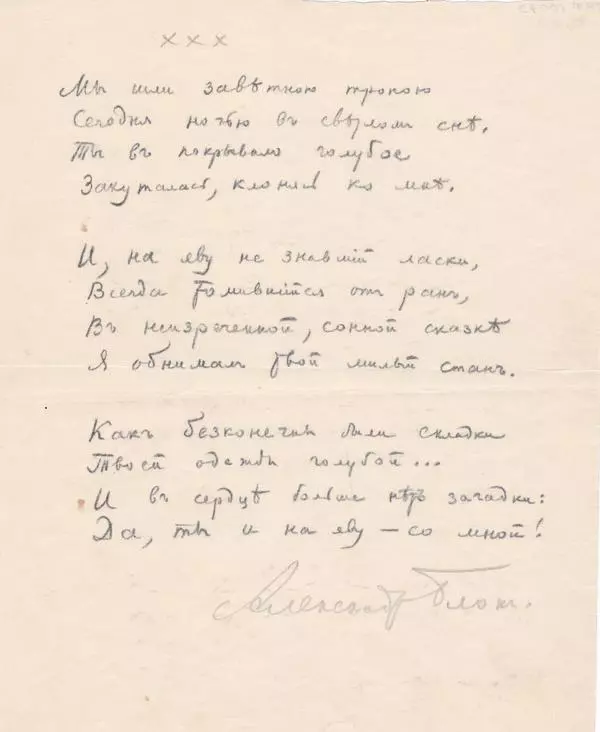 ×××
Мы шли завѣтною тропою
Сегодня ночью въ свѣтломъ снѣ.
Ты въ покрывало голубое
Закуталась, клонясь ко мнѣ.
И, на яву не знавшій ласки,
Всегда томившійся отъ ранъ,
Въ неизреченной, сонной сказкѣ
Я обнималъ твой милый станъ.
Какъ безконечны были складки
Твоей одежды голубой...
И въ сердцѣ больше нѣтъ загадки:
Да, ты и на яву – со мной!
Александръ Блокъ.